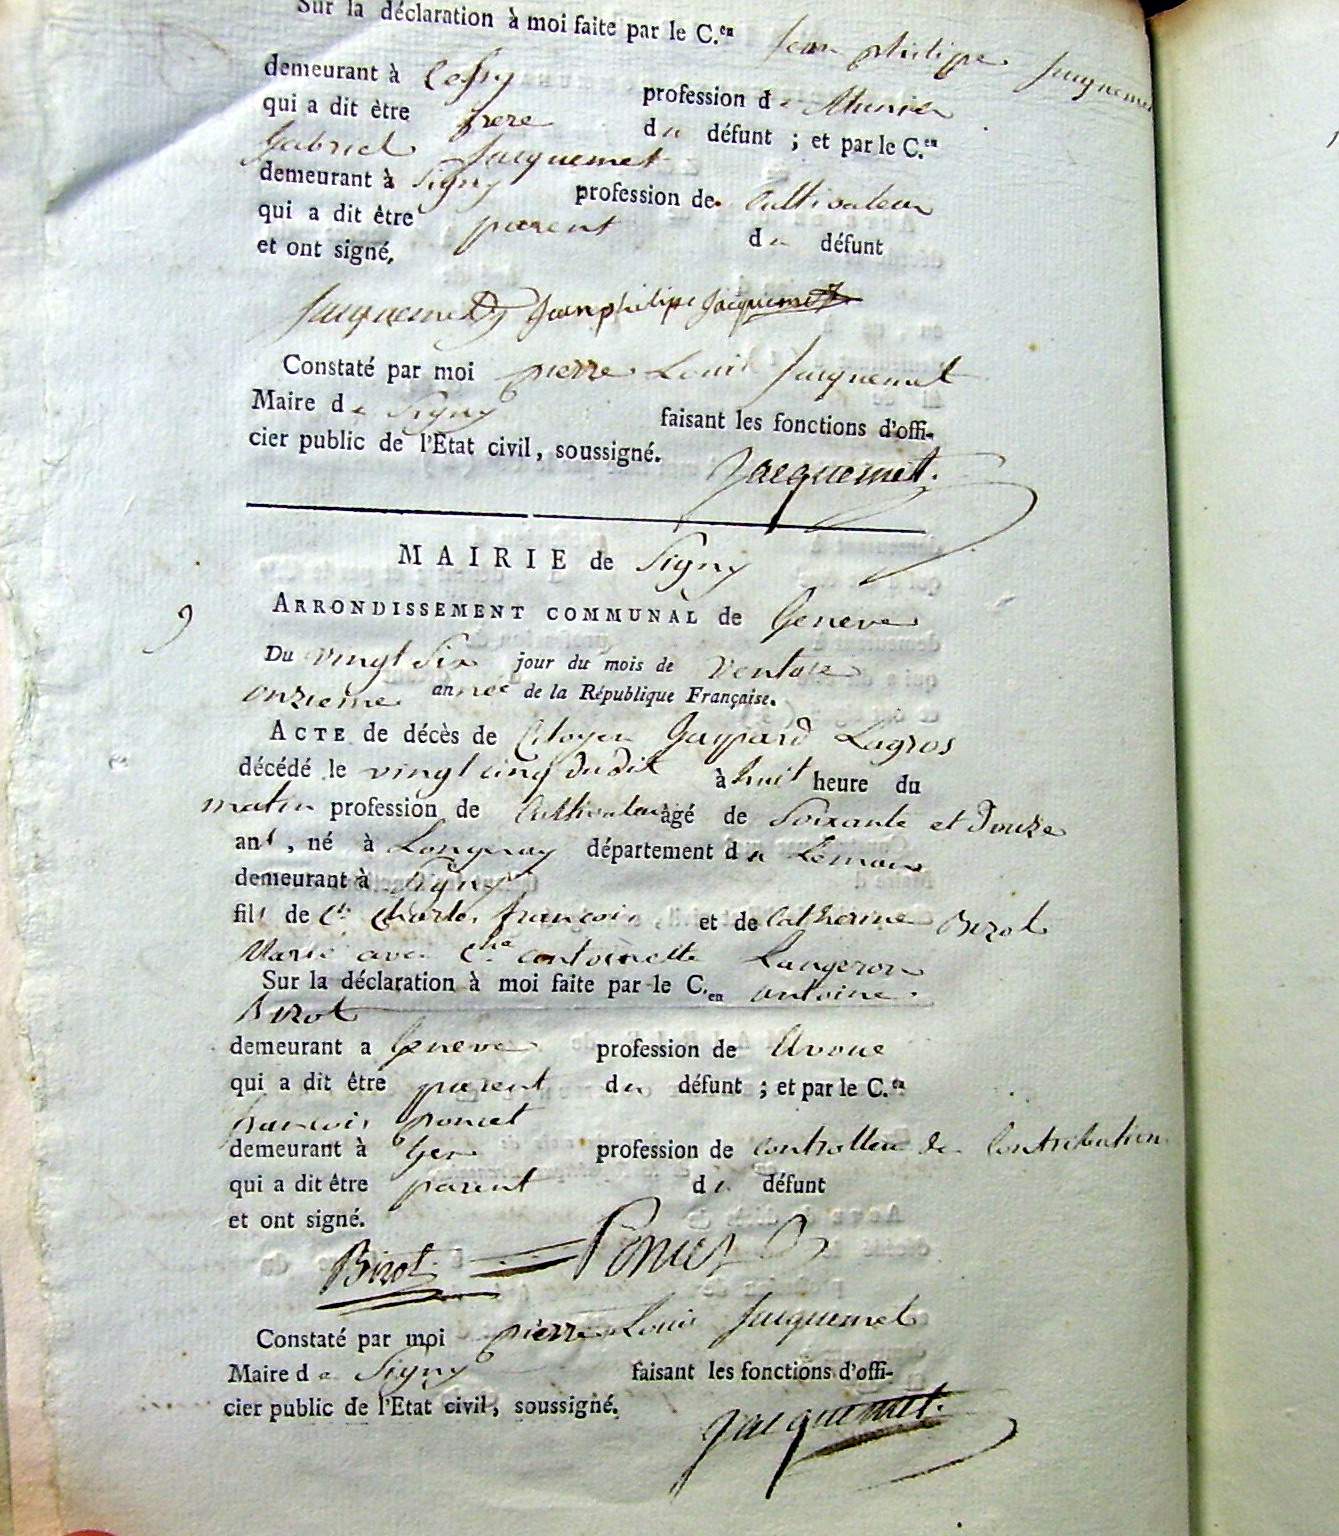 Sur la déclaration à moi faite par le C.en Jean philippe Jacquemet
demeurant à Cessy profession de Munier
qui a dit être frere du défunt ; et par le C.en
Gabriel Jacquemet
demeurant à Signy profession de Cultivateur
qui a dit être parent du défunt
et ont signé,
Jacquemet Jeanphilipe Jacquemet
Constaté par moi pierre Louis Jacquemet
Maire de Signy faisant les fonctions d'offi-
cier public de l'Etat civil, soussigné.
Jacquemet.
MAIRIE de Signy
9 ARRONDISSEMENT COMMUNAL de Geneve
Du vingt Six jour du mois de Ventose
onzieme année de la République Française.
ACTE de décès de Citoyen Gaspard Lagros
décédé le vingt cinq dudit à huit heure du
matin profession de Cultivateur âgé de Soixante et Douze
ans, né à Longeray département du Leman
demeurant à Signy
fils de Cn Charles francois et de Catherine Bizot
Marié avec Cne antoinette Langeron
Sur la déclaration à moi faite par le C.en antoine
Bizot
demeurant a Geneve profession de Avoue
qui a dit être parent du défunt ; et par le C.en
francois poncet
demeurant à Gex profession de Controlleur de Contribution
qui a dit être parent du défunt
et ont signé.
Bizot Poncet
Constaté par moi pierre Louis Jacquemet
Maire de Signy faisant les fonctions d'offi-
cier public de l'Etat civil, soussigné.
Jacquemet.